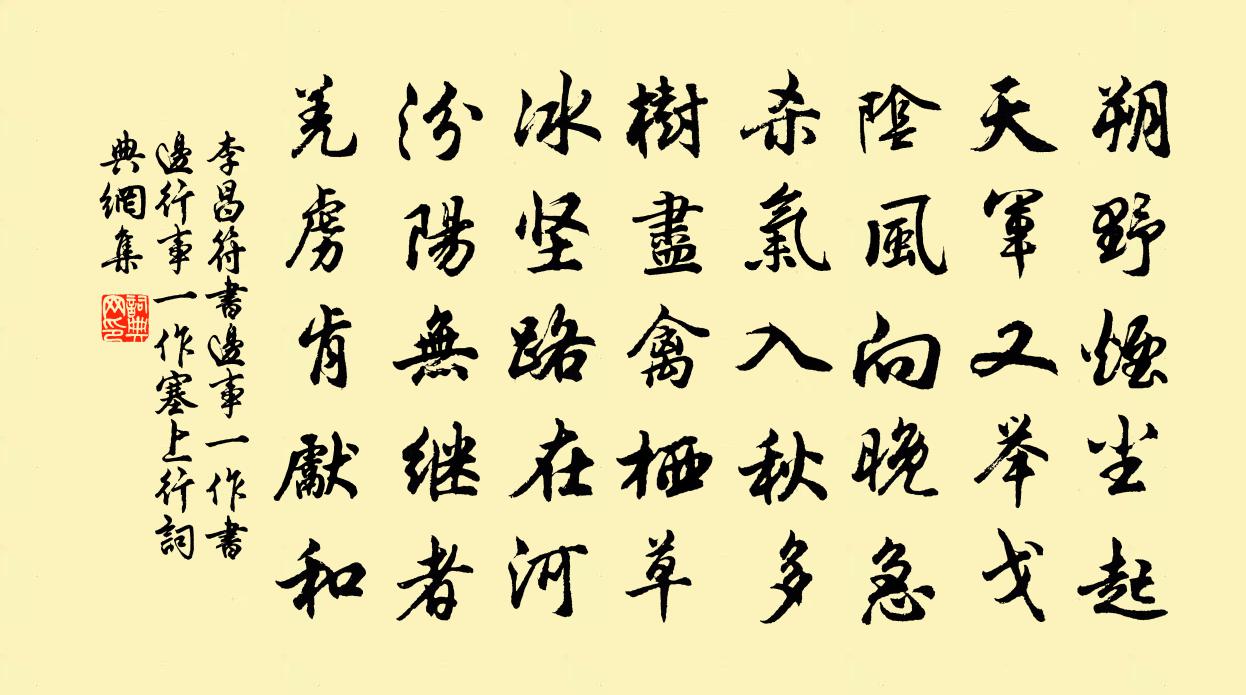 朔野煙尘起
天軍又举戈
陰風向晚急
杀氣入秋多
樹盡禽栖草
冰坚路在河
汾陽無继者
羌虏肯獻和
李昌符書邊事一作書
邊行事一作塞上行詞
典網集
詞典
网印